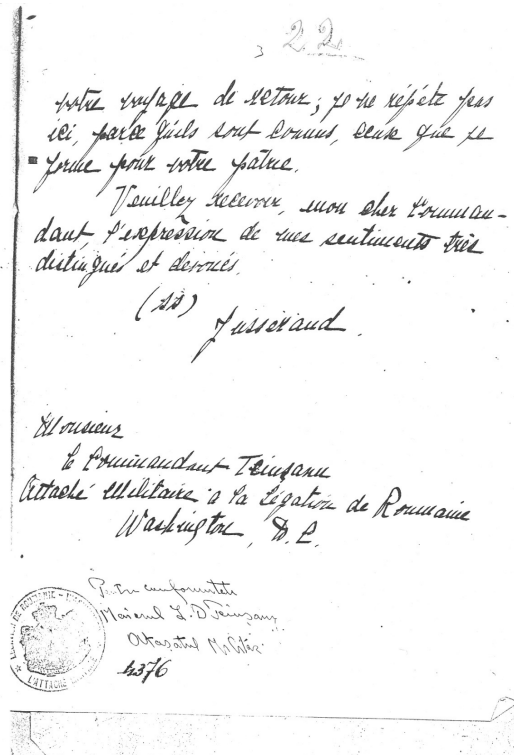 22
votre voyage de retour; je ne répète pas
ici, parce qu'ils sont connus, ceux que je
forme pour votre patrie.
Veuillez recevoir, mon cher Comman-
dant, l'expression de mes sentiments très
distingués et dévoués.
(ss)
Jusserand
Monsieur
le Commandant Teiușanu
Attaché Militaire à la Légation de Roumanie
Washington, D.C.
Pentru conformitate
Maiorul L. D. Teiușanu
Atașatul Militar
4376
DE ROUMANIE
L'ATTACHÉ